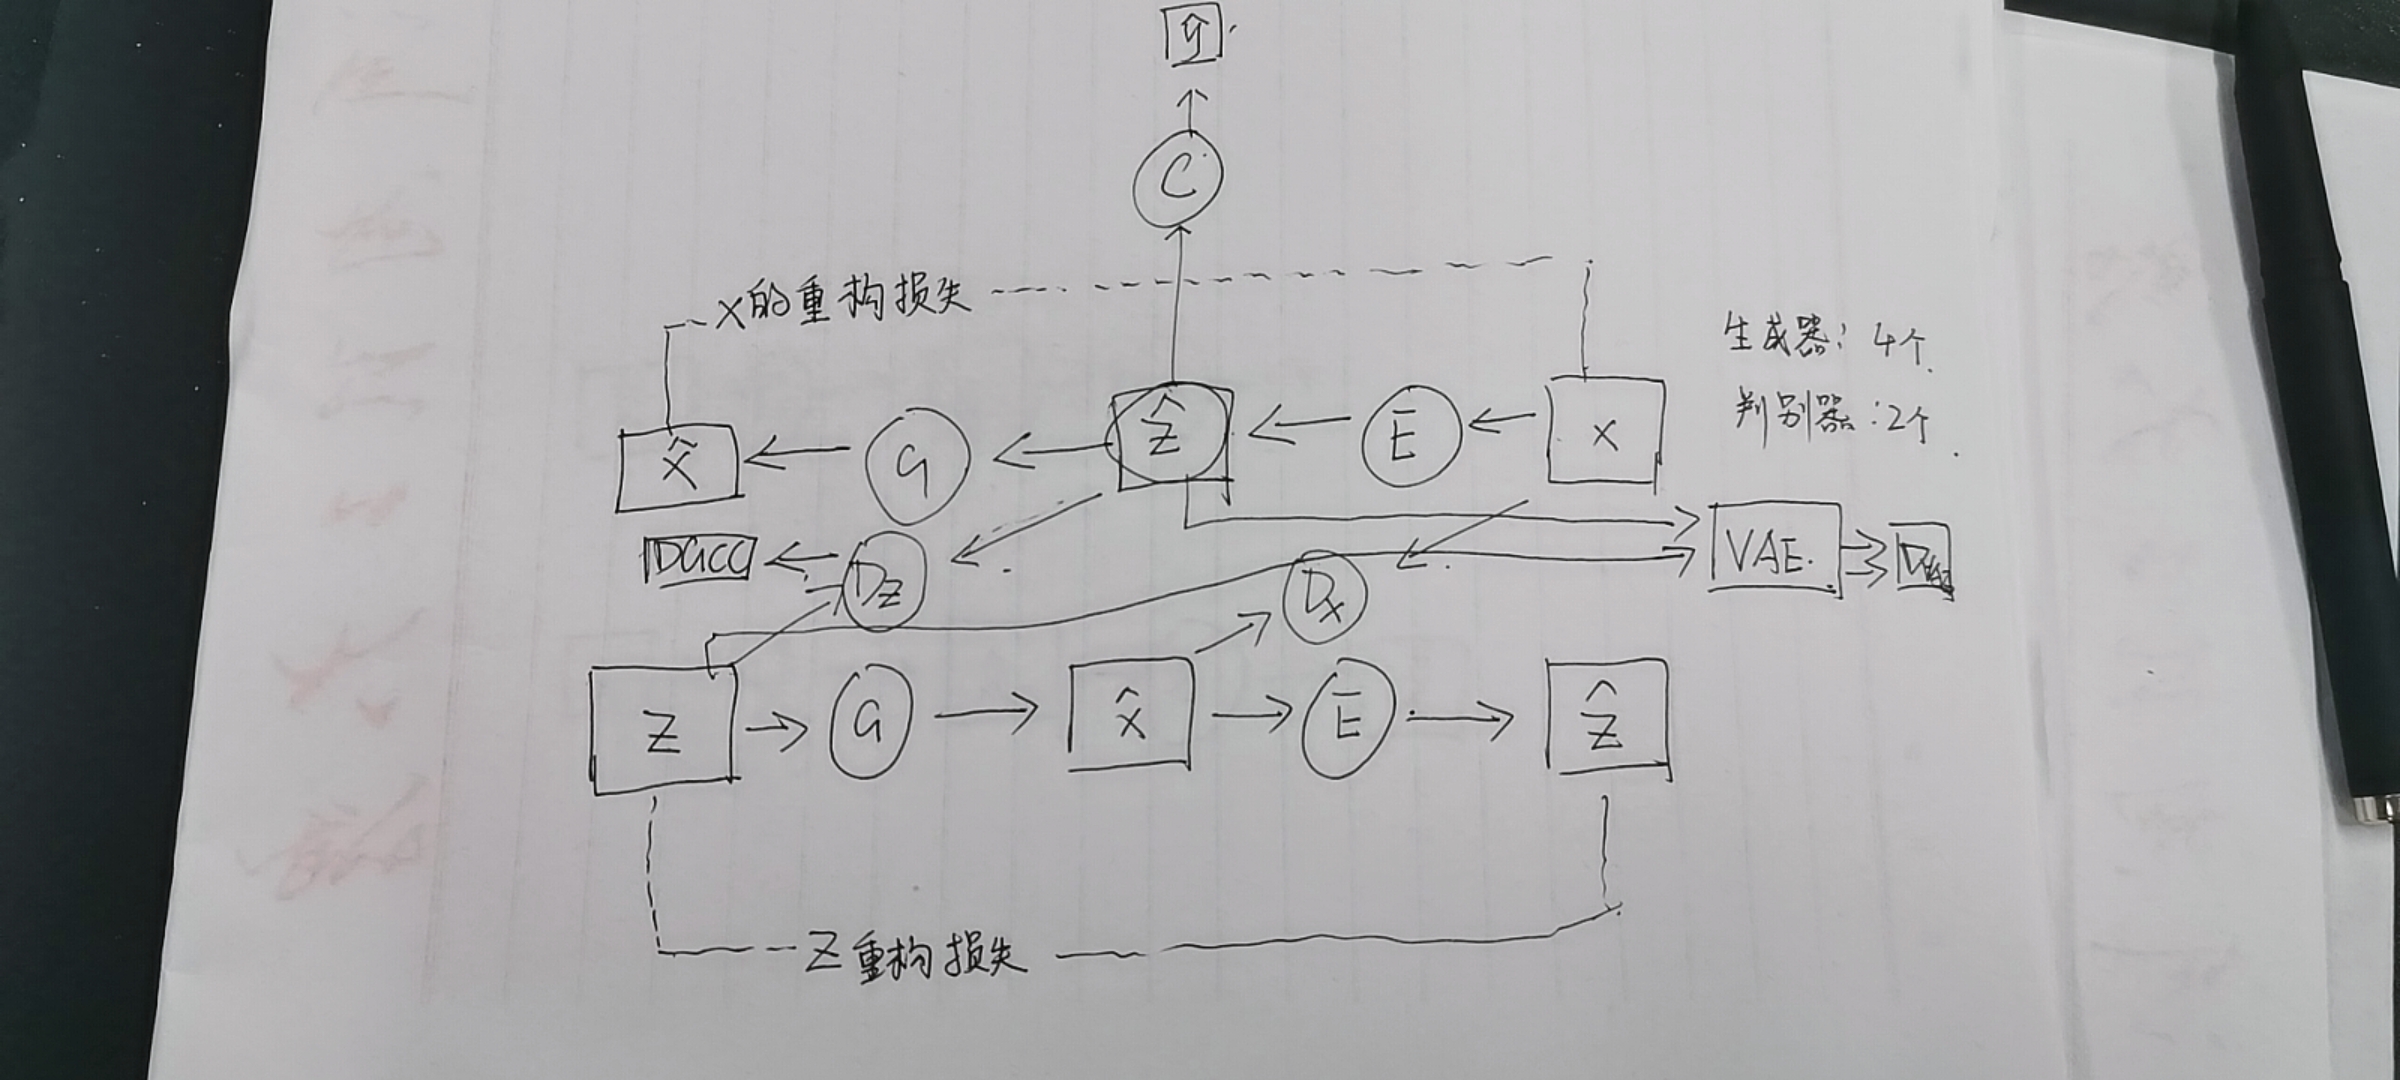 ŷ
C
x的重构损失
生成器: 4个
判别器: 2个
x̂ G ẑ E x
DGCC Dz Dx VAE.
z G x̂ E ẑ
z重构损失